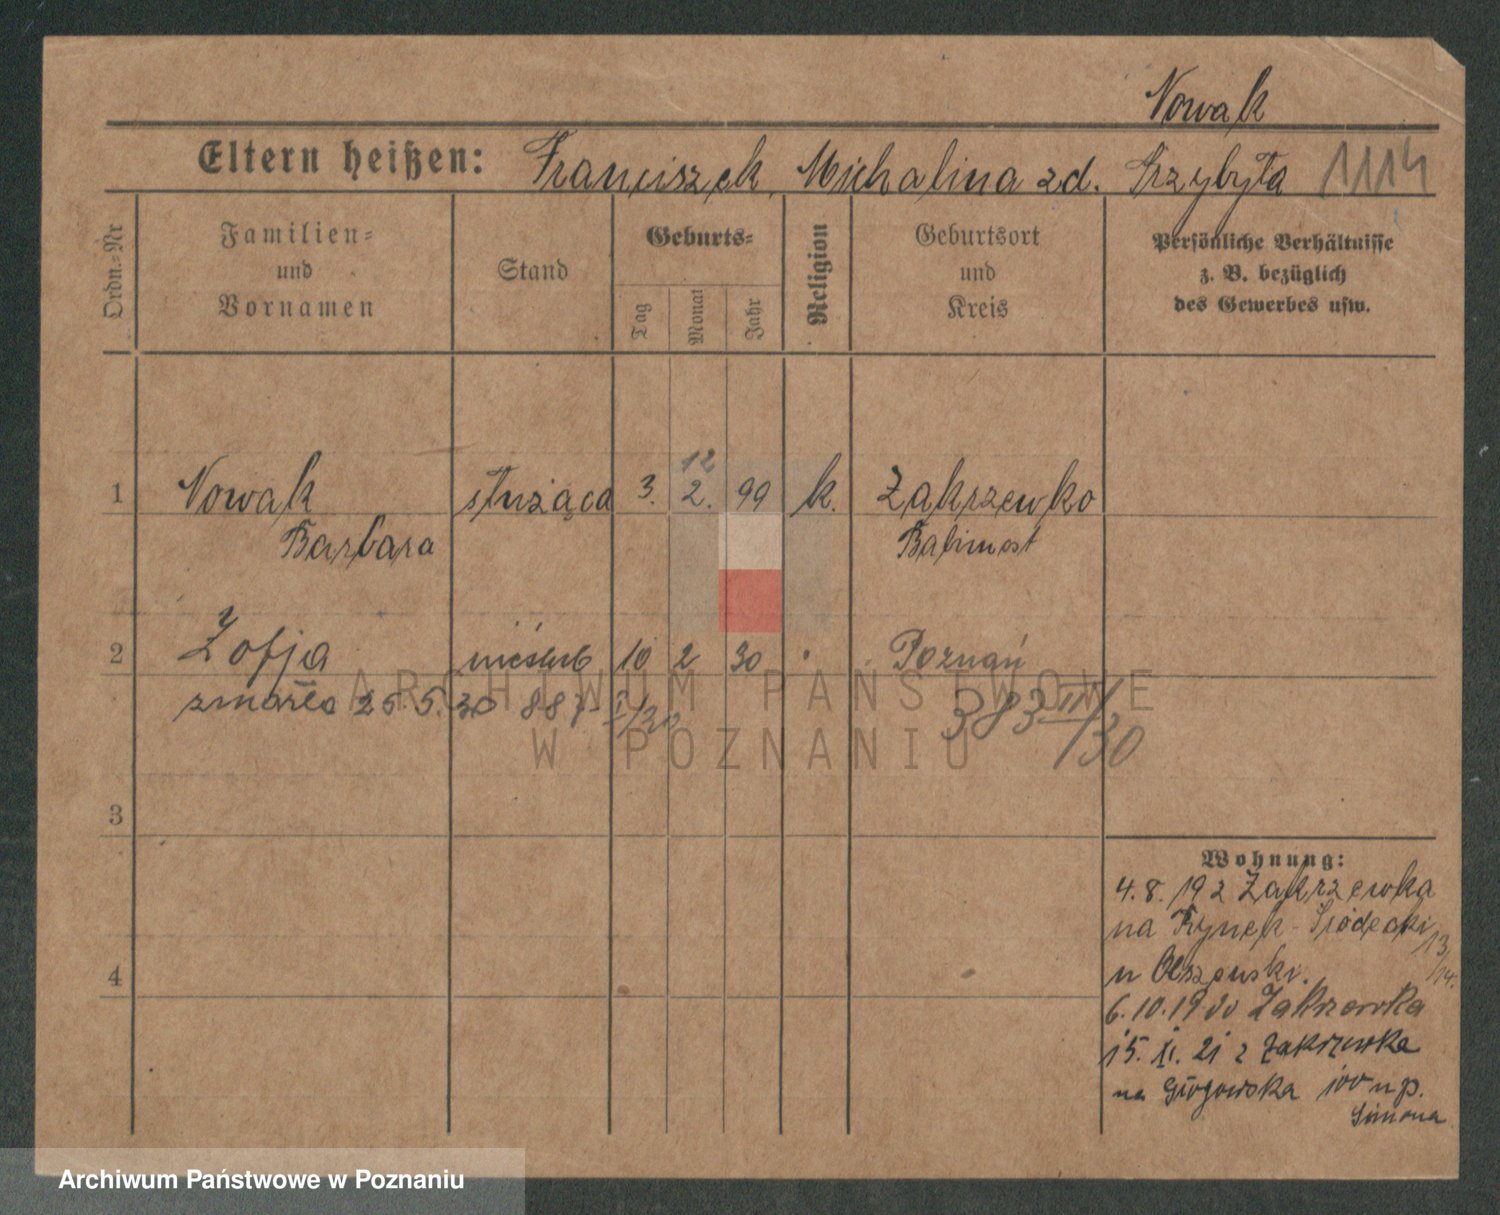 Nowak
Eltern heißen: Franciszek, Michalina zd. Przybyła 1114
Ordn.-Nr
Familien-
und
Vornamen
Stand
Geburts-
Tag
Monat
Jahr
Religion
Geburtsort
und
Kreis
Persönliche Verhältnisse
z. B. bezüglich
des Gewerbes usw.
12
1 Nowak służąca 3. 2. 99 k. Zakrzewko
Barbara Babimost
2 Zofja nieślub 10 2 30 Poznań
zmarła 25.5.30 887 I/30 383 III/30
3
4
Wohnung:
4.8.19 z Zakrzewka
na Rynek-Śródecki 13/14.
u Olszewski.
6.10.1920 Zakrzewka
15.XI.21 z Zakrzewka
na Głogowska 100 u p.
Simona
ARCHIWUM PAŃSTWOWE
W POZNANIU
Archiwum Państwowe w Poznaniu